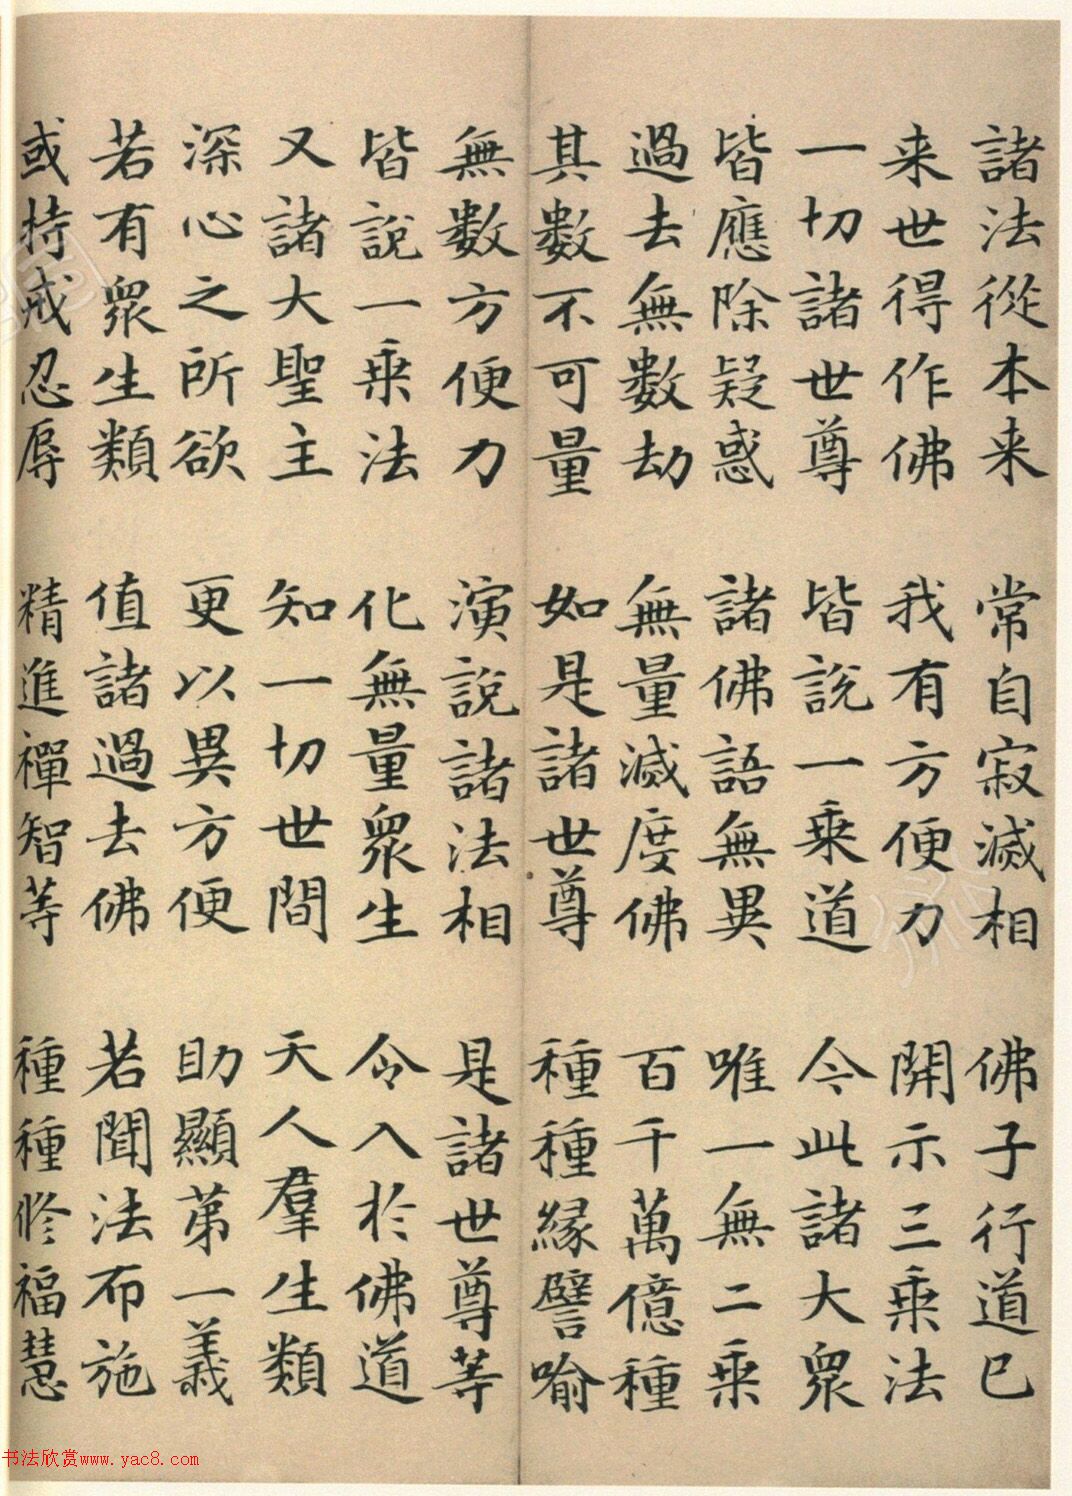 諸法從本来 常自寂滅相 佛子行道已
来世得作佛 我有方便力 開示三乗法
一切諸世尊 皆説一乗道 今此諸大衆
皆應除疑惑 諸佛語無異 唯一無二乗
過去無數劫 無量滅度佛 百千萬億種
其數不可量 如是諸世尊 種種縁譬喻
無數方便力 演說諸法相 是諸世尊等
皆說一乗法 化無量衆生 令入於佛道
又諸大聖主 知一切世間 天人羣生類
深心之所欲 更以異方便 助顯第一義
若有衆生類 值諸過去佛 若聞法布施
或持戒忍辱 精進禪智等 種種修福慧
书法欣赏www.yac8.com